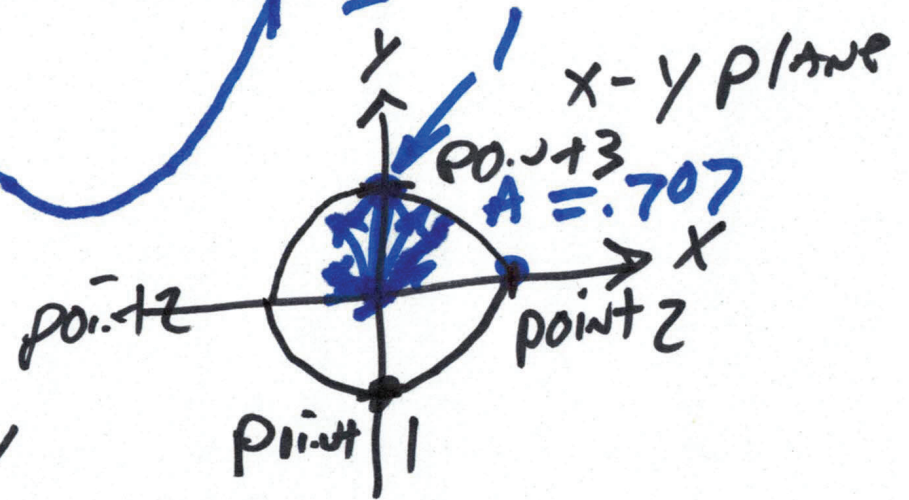 Y
X-Y PLANE
point 3
A = .707
X
point 2
point 2
point 1